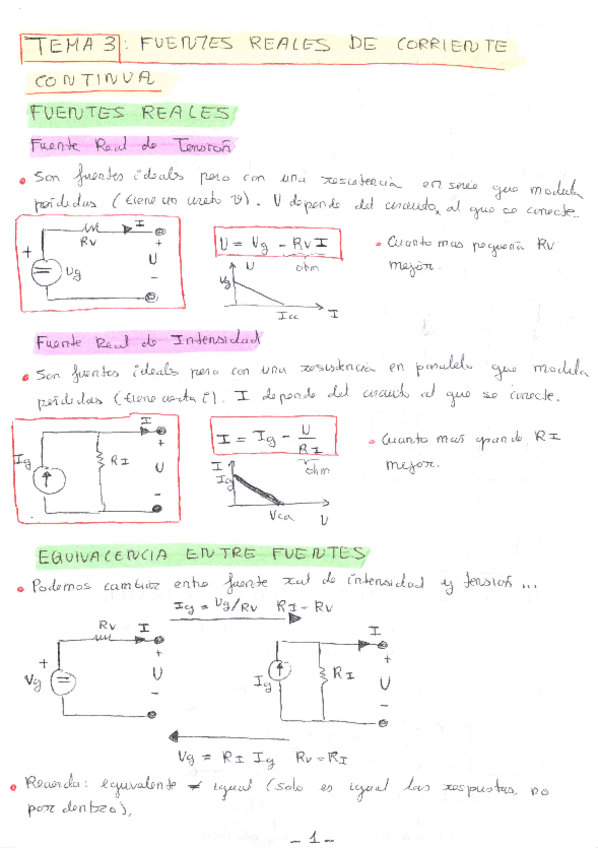 TEMA 3: FUENTES REALES DE CORRIENTE
CONTINUA
FUENTES REALES
Fuente Real de Tensión
• Son fuentes ideales pero con una resistencia en serie que modula
pérdidas (tiene un cierto v). U depende del circuito al que se conecte.
Rv I
+ Ug
+ U -
U = Vg - Rv I
ohm
• Cuanto mas pequeña Rv
mejor.
U
Vg
Icc I
Fuente Real de Intensidad
• Son fuentes ideales pero con una resistencia en paralelo que modula
pérdidas (tiene cierta i). I depende del circuito al que se conecte.
I
Ig RI
+ U -
I = Ig - U/RI
ohm
• Cuanto mas grande RI
mejor.
I
Ig
Vca U
EQUIVALENCIA ENTRE FUENTES
• Podemos cambiar entre fuente real de intensidad y tensión ...
Ig = Vg/Rv RI = Rv
Rv I
+ Vg
+ U -
I
Ig RI
+ U -
Vg = RI Ig Rv = RI
• Recuerda: equivalente ≠ igual (solo es igual las respuestas, no
por dentro),
- 1 -